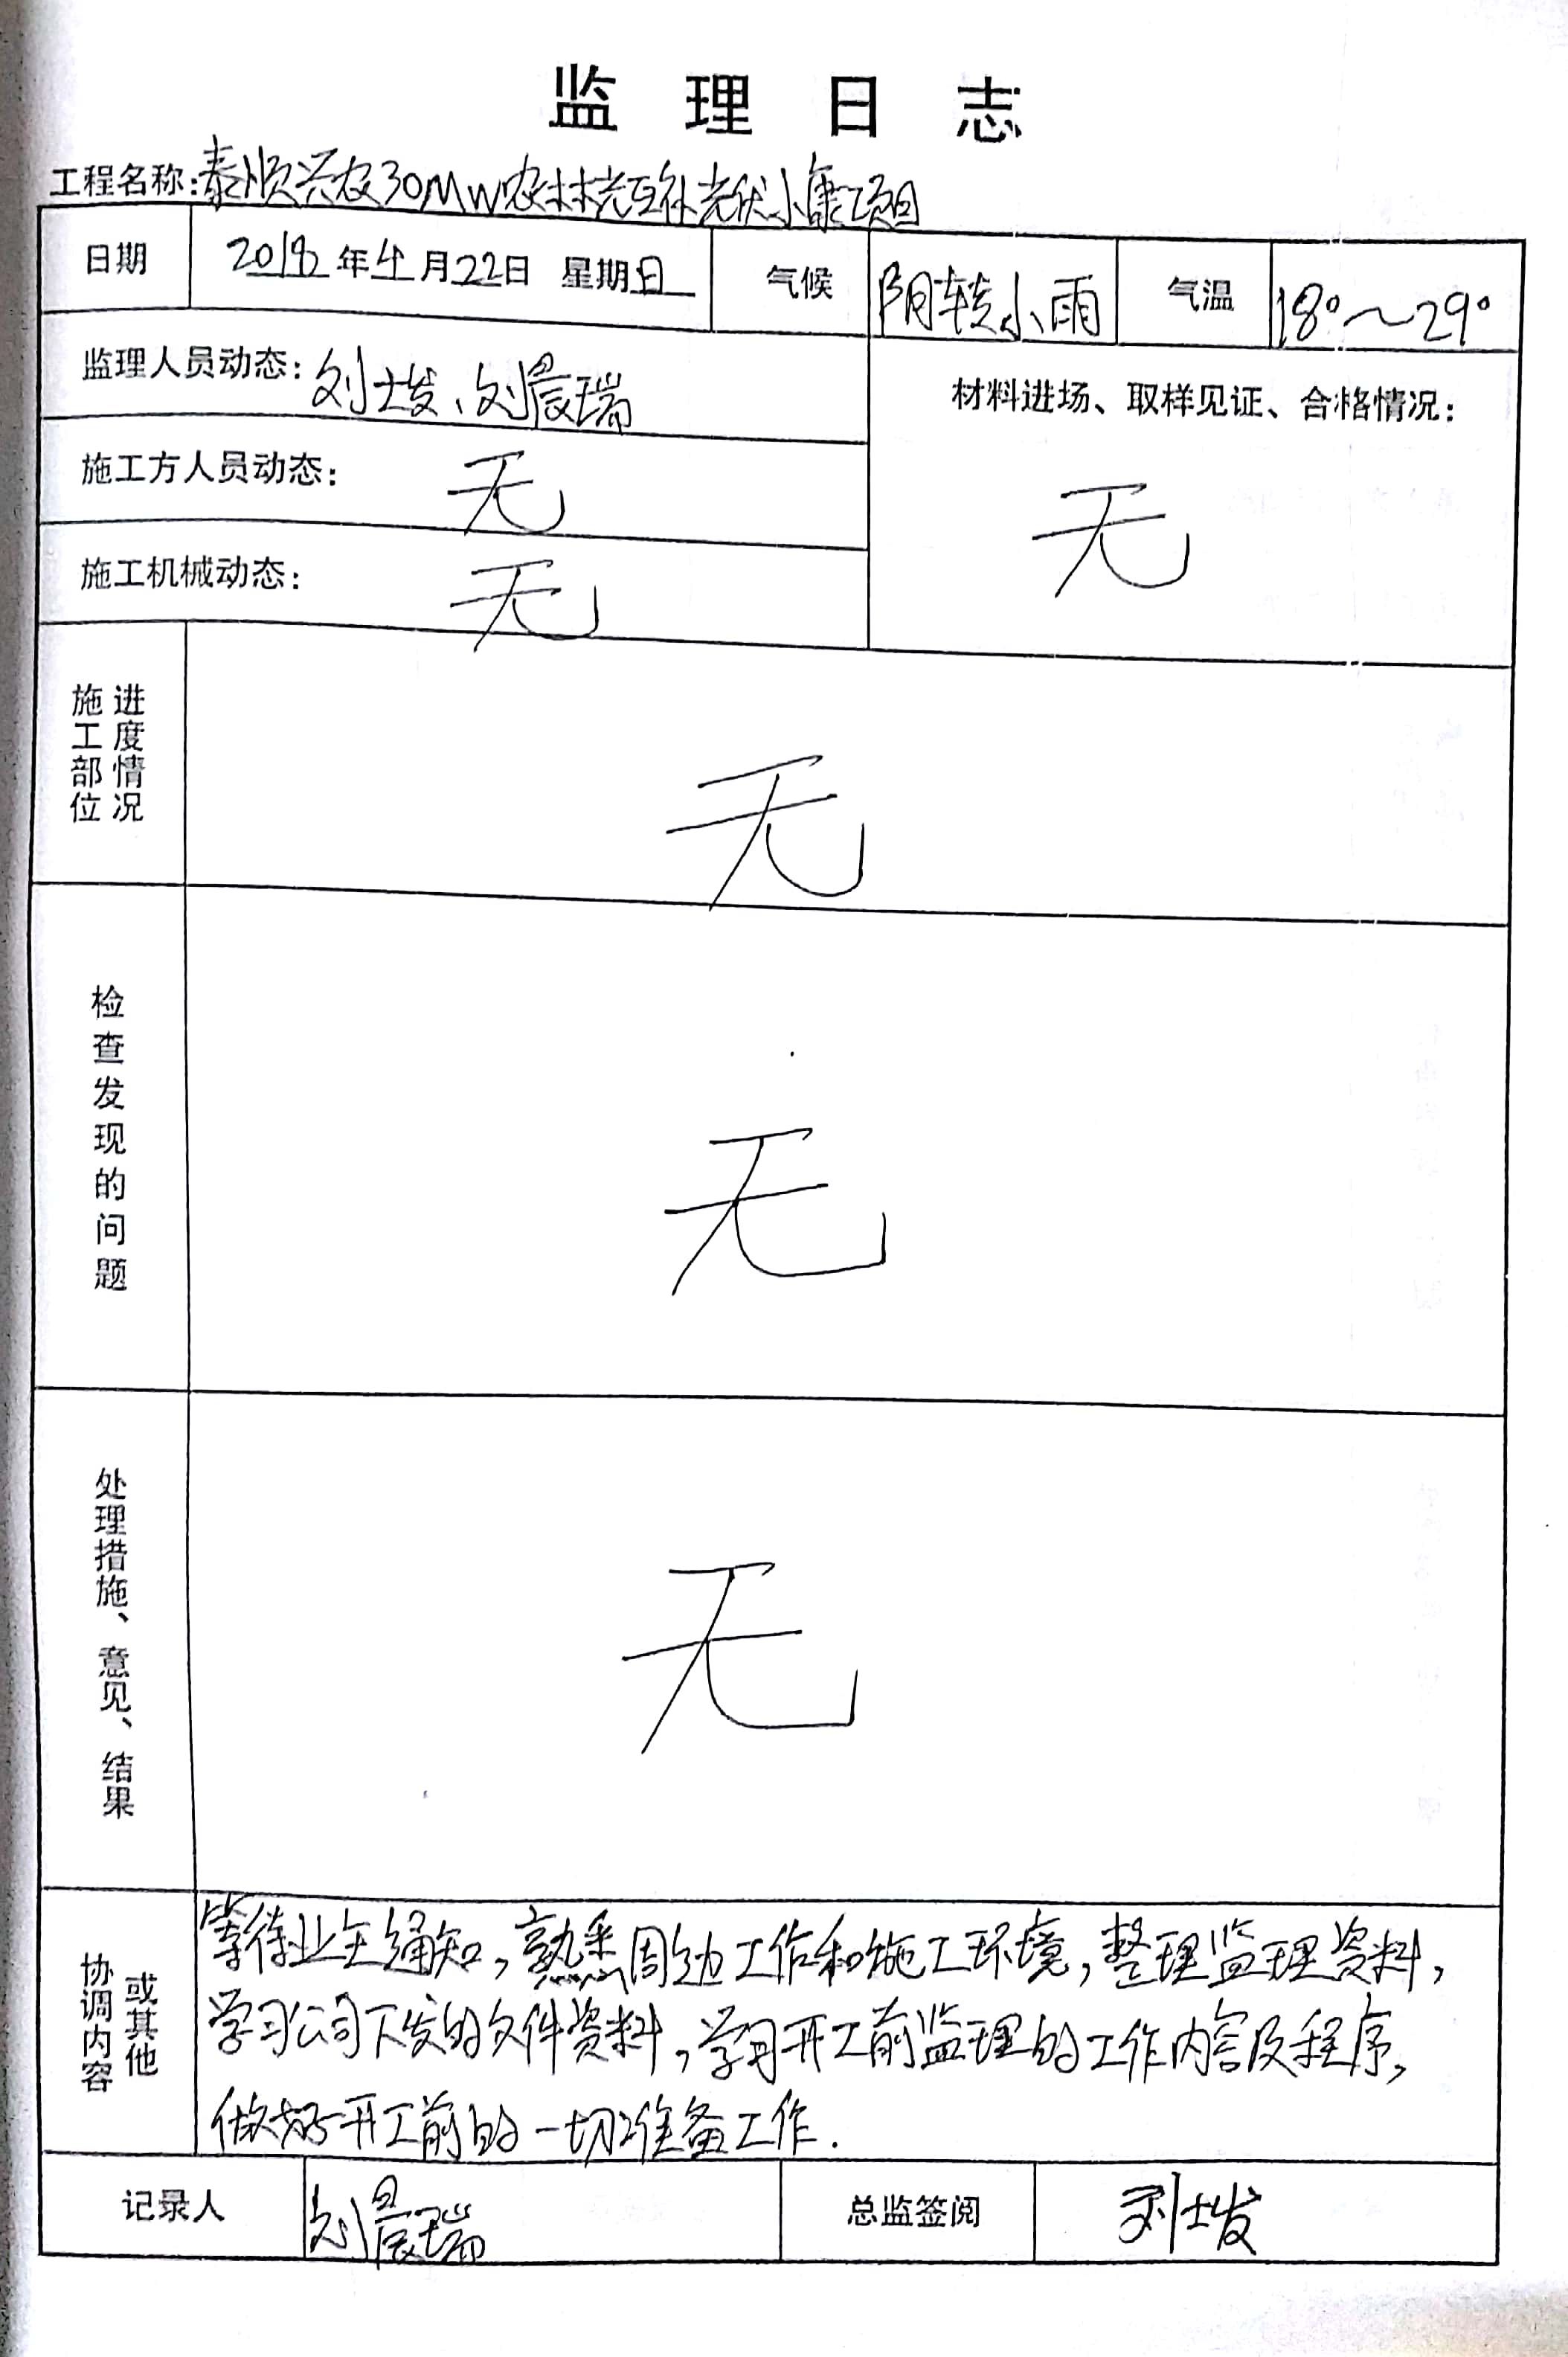 监理日志
工程名称:泰顺兴农30MW农林光互补光伏小康项目
日期 2018年4月22日 星期日 气候 阴转小雨 气温 18°~29°
监理人员动态:刘士发、刘晨瑞
材料进场、取样见证、合格情况:
无
施工方人员动态: 无
施工机械动态: 无
施工部位
进度情况
无
检查发现的问题
无
处理措施、意见、结果
无
协调内容
或其他
等待业主通知,熟悉周边工作和施工环境,整理监理资料,
学习公司下发的文件资料,学习开工前监理的工作内容及程序,
做好开工前的一切准备工作.
记录人 刘晨瑞 总监签阅 刘士发